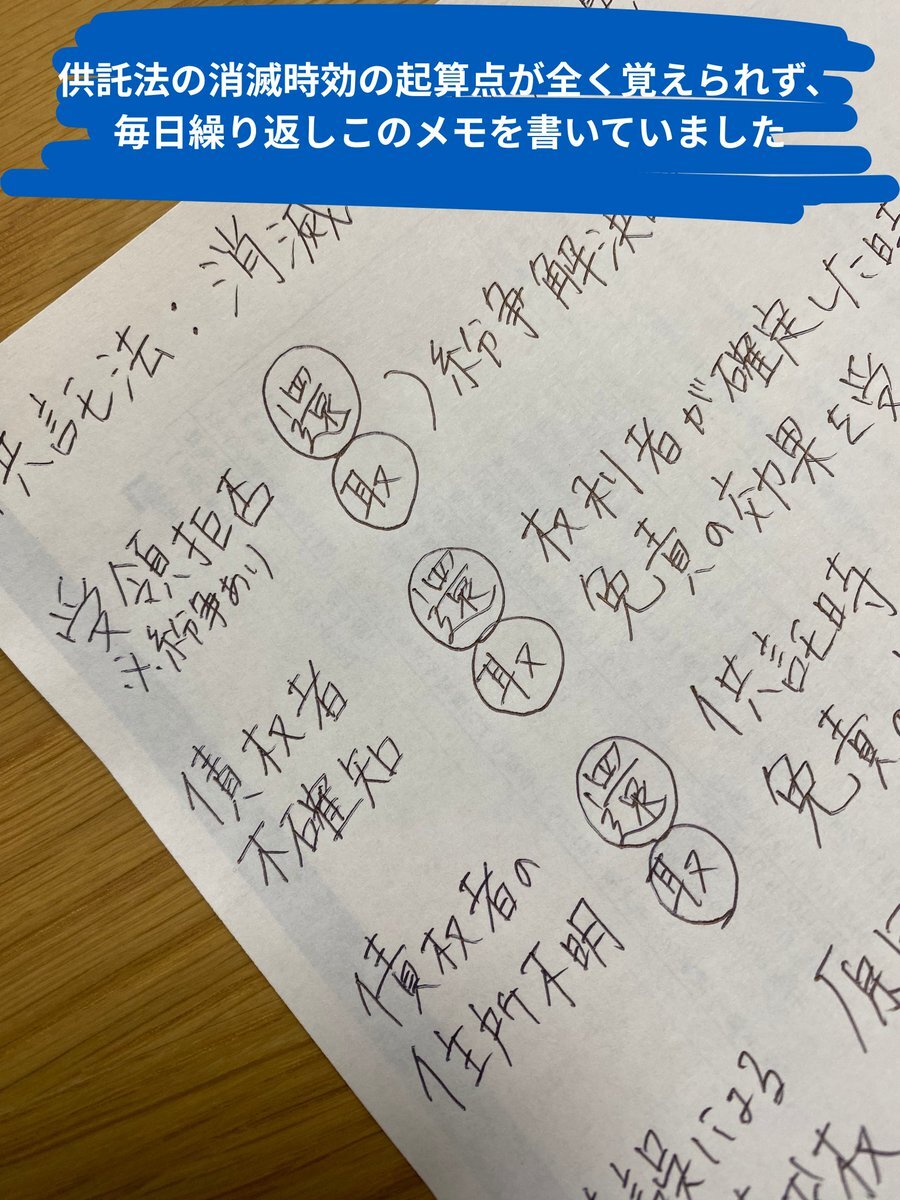 供託法の消滅時効の起算点が全く覚えられず、
毎日繰り返しこのメモを書いていました
供託法：消滅
受領拒否
※紛争あり
還
取
）紛争解決
債权者
不確知
還
取
权利者が確定した時
免責の効果を受
債权者の
住所不明
還
取
供託時
免責の
による